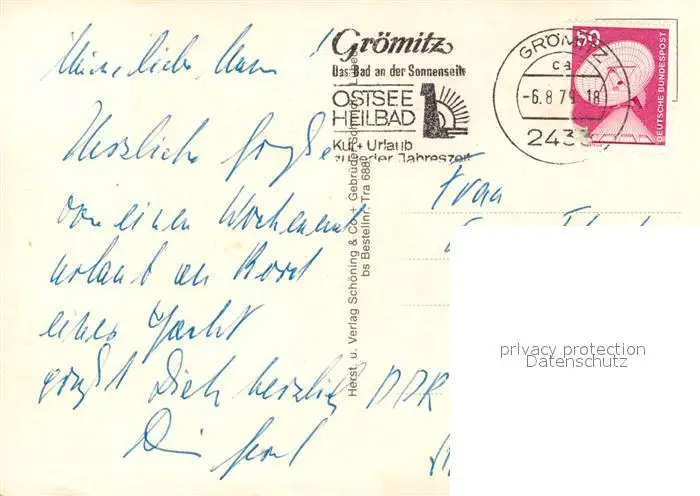 Meine liebe
!
Herzliche Grüße
von einem Wochenend
urlaub an Bord
einer Yacht
grüßt Dich herzlich
Grömitz
Das Bad an der Sonnenseite
OSTSEE
HEILBAD
Kur + Urlaub
zu jeder Jahreszeit
GRÖMITZ
ca
-6.8.79-18
2433
50
DEUTSCHE BUNDESPOST
Herst. u. Verlag Schöning & Co + Gebrüder Schmidt, Lübeck
bs Bestellnr. Tra 688
Frau
DDR
privacy protection
Datenschutz